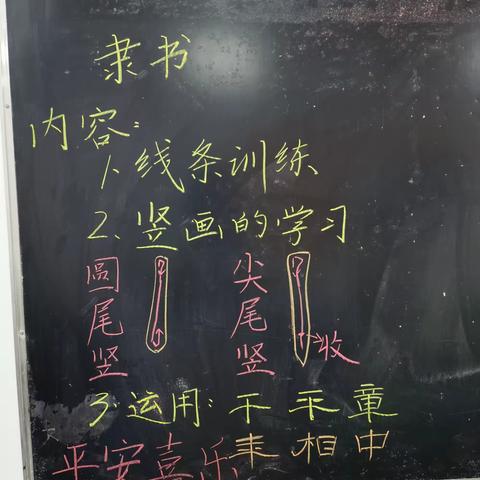 隶书
内容:
1、线条训练
2、竖画的学习
圆尾竖
尖尾竖
收
3·运用:干平童
丰相中
平安喜乐